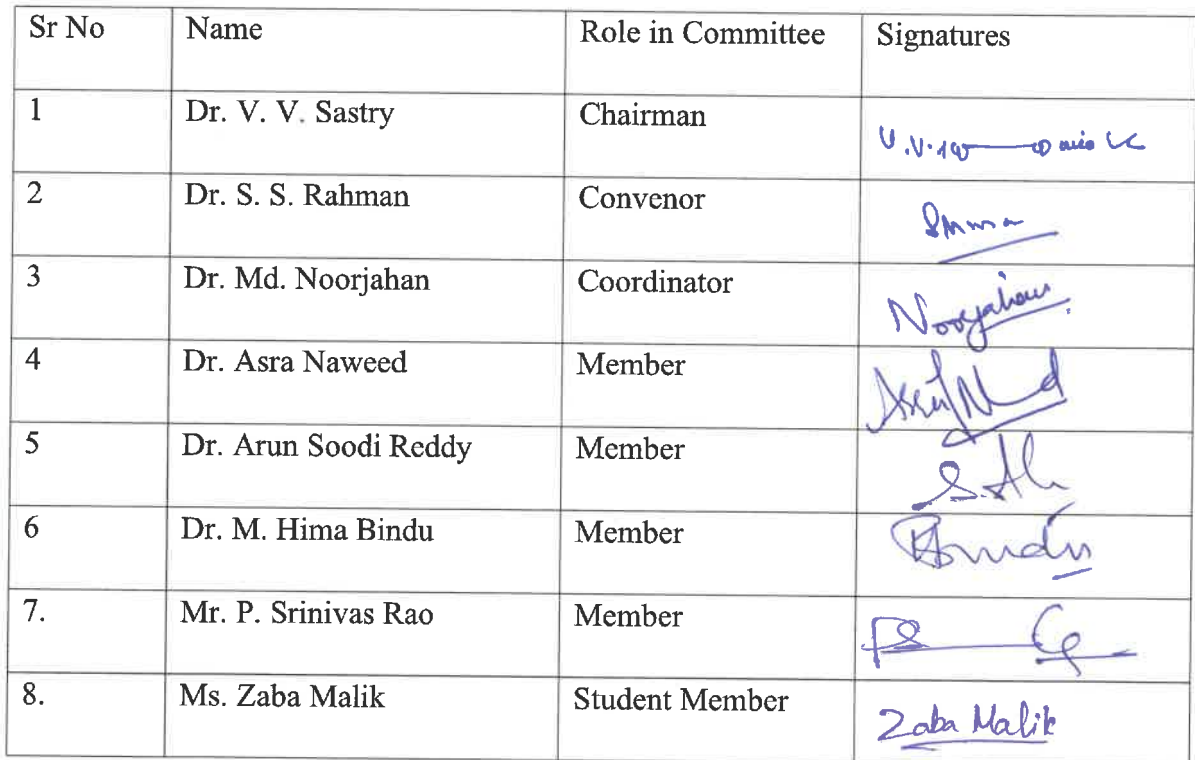 Sr No Name Role in Committee Signatures
1 Dr. V. V. Sastry Chairman
2 Dr. S. S. Rahman Convenor
3 Dr. Md. Noorjahan Coordinator Noorjahan
4 Dr. Asra Naweed Member
5 Dr. Arun Soodi Reddy Member
6 Dr. M. Hima Bindu Member
7. Mr. P. Srinivas Rao Member
8. Ms. Zaba Malik Student Member Zaba Malik